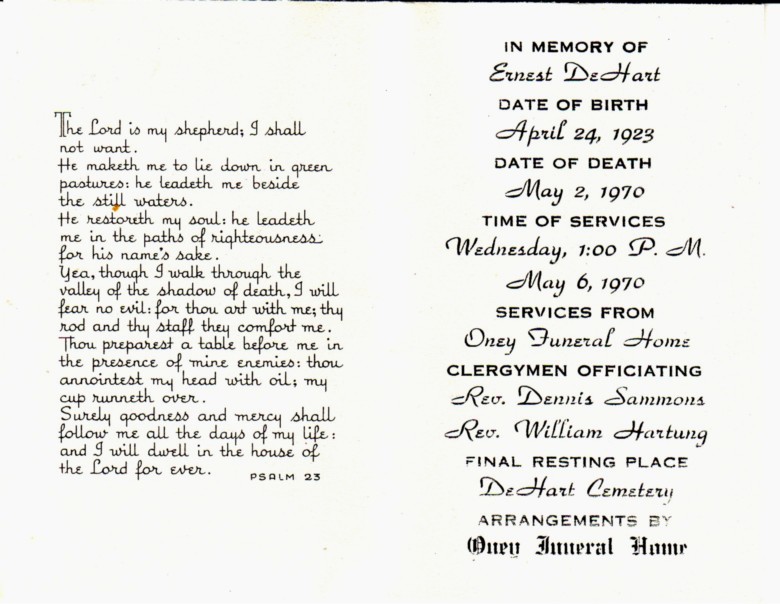 The Lord is my shepherd; I shall
not want.
He maketh me to lie down in green
pastures: he leadeth me beside
the still waters.
He restoreth my soul: he leadeth
me in the paths of righteousness
for his name's sake.
Yea, though I walk through the
valley of the shadow of death, I will
fear no evil: for thou art with me; thy
rod and thy staff they comfort me.
Thou preparest a table before me in
the presence of mine enemies: thou
annointest my head with oil; my
cup runneth over.
Surely goodness and mercy shall
follow me all the days of my life:
and I will dwell in the house of
the Lord for ever.
PSALM 23
IN MEMORY OF
Ernest DeHart
DATE OF BIRTH
April 24, 1923
DATE OF DEATH
May 2, 1970
TIME OF SERVICES
Wednesday, 1:00 P. M.
May 6, 1970
SERVICES FROM
Oney Funeral Home
CLERGYMEN OFFICIATING
Rev. Dennis Sammons
Rev. William Hartung
FINAL RESTING PLACE
DeHart Cemetery
ARRANGEMENTS BY
Oney Funeral Home